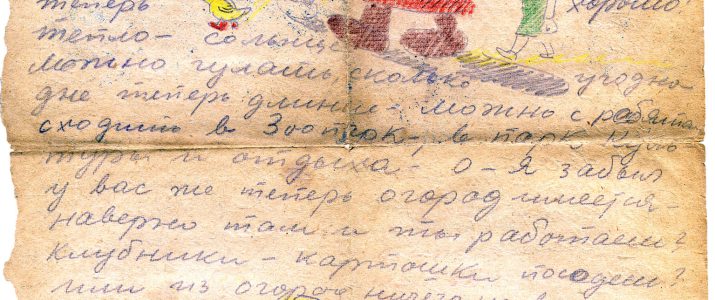 теперь хорошо!
тепло - солнце
можно гулять, сколько угодно
дне теперь длинне - можно с ребята
сходить в Зоопок, в парк Куль
туры и отдыха - О - Я забыл
у вас же теперь огород имеется -
наверно там и ты работаеш?
Клубники - картошки поедеш?
или из огород